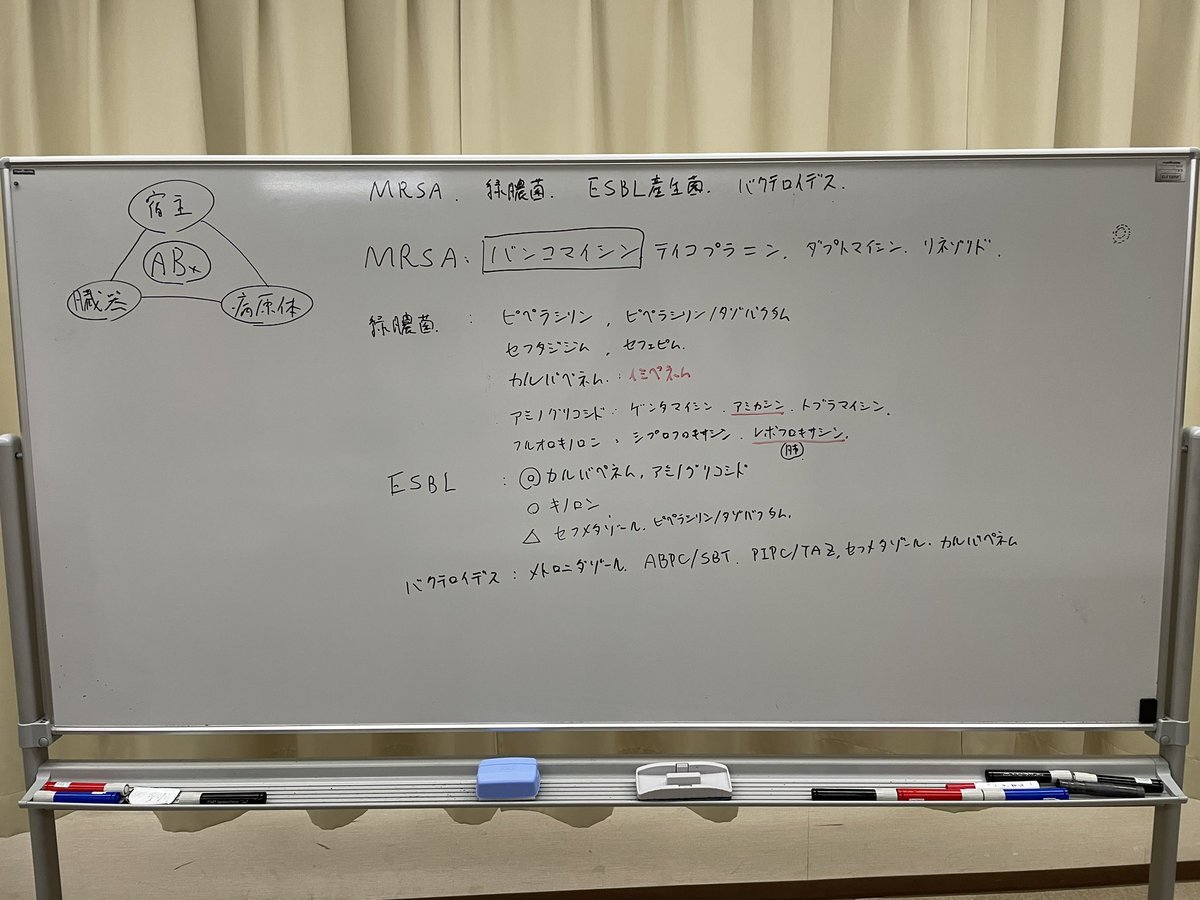 宿主
ABx
臓器
病原体
MRSA. 緑膿菌. ESBL産生菌. バクテロイデス.
MRSA: バンコマイシン テイコプラニン. ダプトマイシン. リネゾリド.
緑膿菌. : ピペラシリン, ピペラシリン/タゾバクタム
セフタジジム, セフェピム.
カルバペネム.: イミペネム
アミノグリコシド: ゲンタマイシン. アミカシン. トブラマイシン.
フルオロキノロン: シプロフロキサシン. レボフロキサシン.
肺
ESBL : ◎カルバペネム, アミノグリコシド
○ キノロン
△ セフメタゾール. ピペラシリン/タゾバクタム.
バクテロイデス: メトロニダゾール. ABPC/SBT. PIPC/TAZ, セフメタゾール. カルバペネム